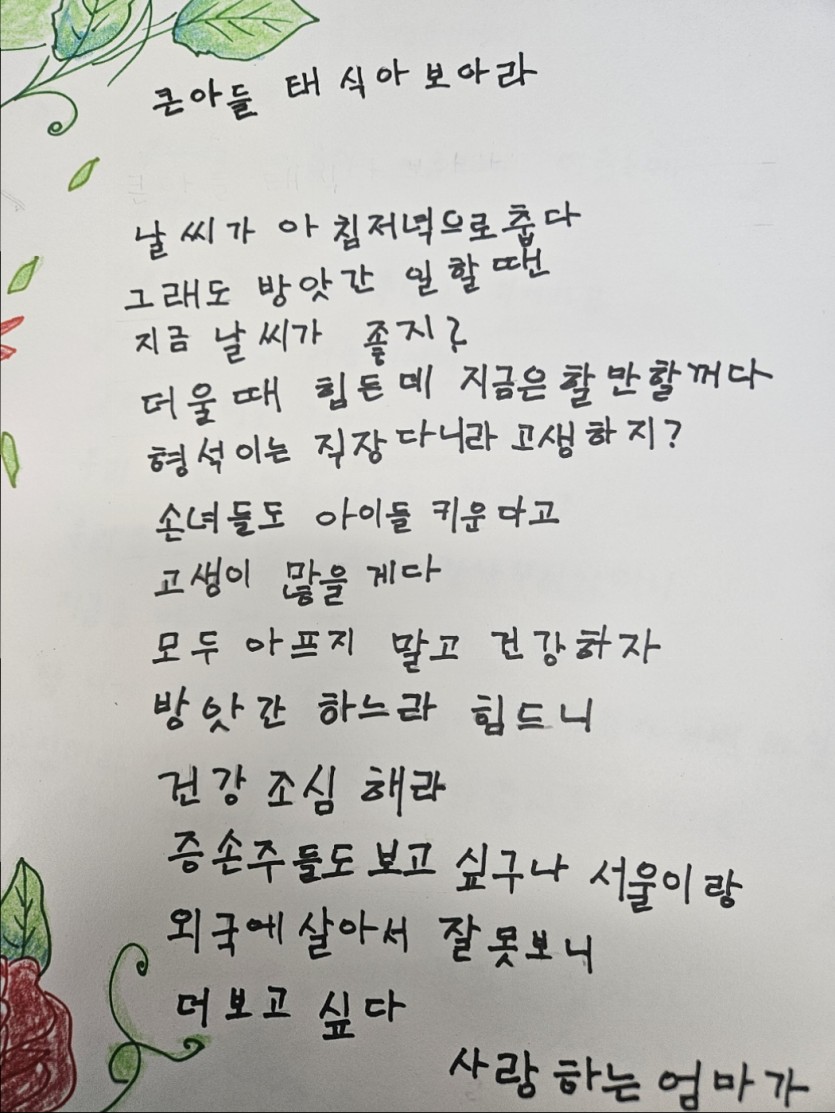 큰아들 태식아 보아라
날씨가 아침저녁으로 춥다
그래도 방앗간 일할 땐
지금 날씨가 좋지?
더울때 힘든데 지금은 할만할꺼다
형석이는 직장다니랴 고생하지?
손녀들도 아이들 키운다고
고생이 많을게다
모두 아프지 말고 건강하자
방앗간 하느라 힘드니
건강조심 해라
증손주들도 보고 싶구나 서울이랑
외국에 살아서 잘못보니
더보고 싶다
사랑하는 엄마가